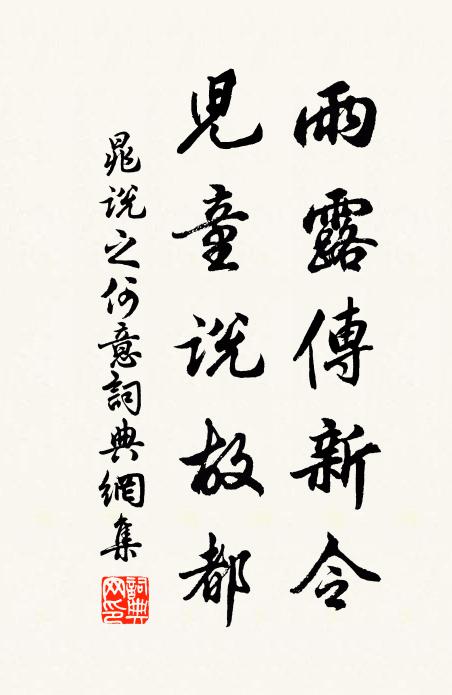 雨露傳新令
兒童説故都
晁説之何意詞典網集
詞典網印